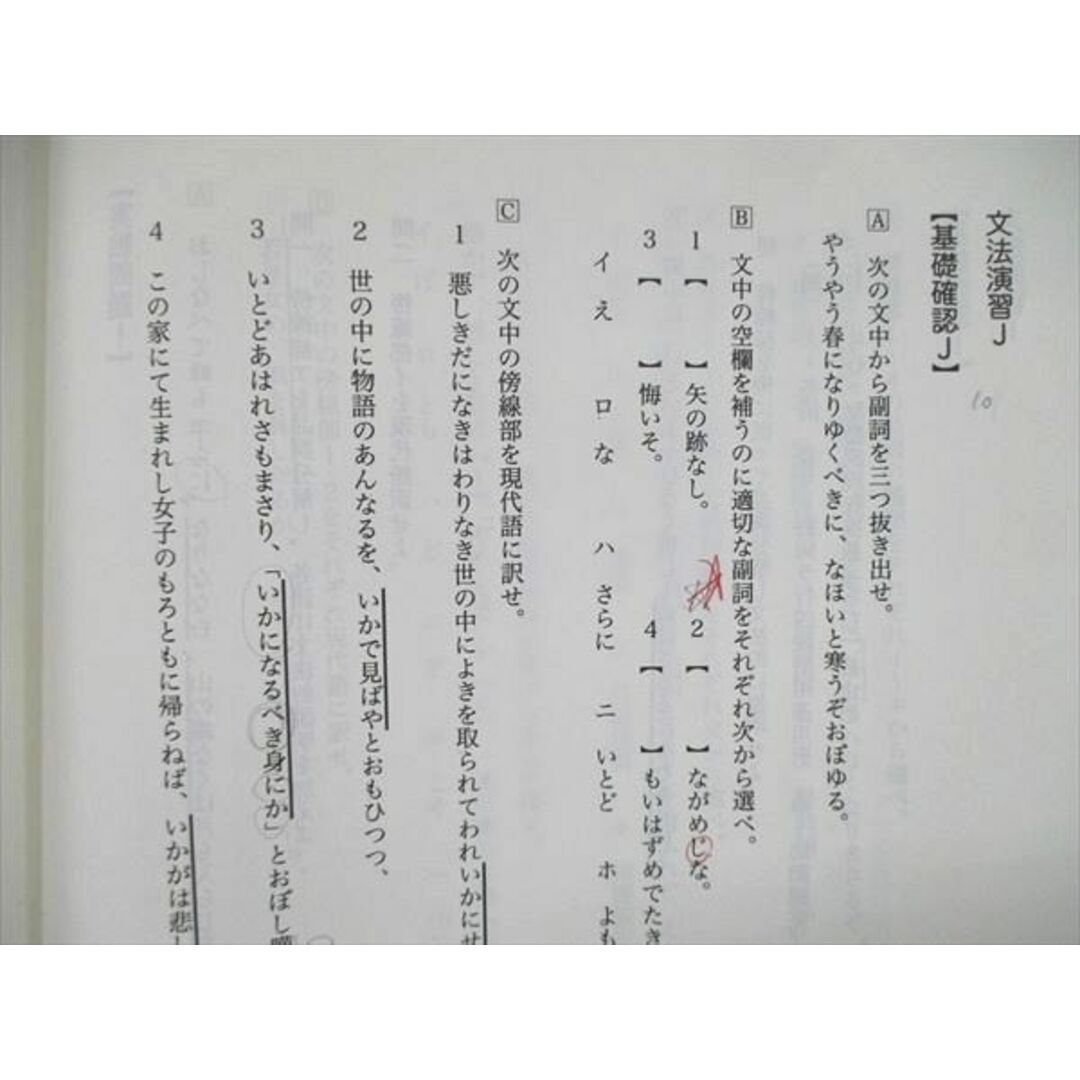 文法演習J
【基礎確認J】
10
A 次の文中から副詞を三つ抜き出せ。
やうやう春になりゆくべきに、なほいと寒うぞおぼゆる。
B 文中の空欄を補うのに適切な副詞をそれぞれ次から選べ。
1【　　】矢の跡なし。　2【　　】ながめじな。
3【　　】悔いそ。　4【　　】もいはずめでたき
イ え　ロ な　ハ さらに　ニ いとど　ホ よも
C 次の文中の傍線部を現代語に訳せ。
1 悪しきだになきはわりなき世の中によきを取られてわれいかにせ
2 世の中に物語のあんなるを、いかで見ばやとおもひつつ、
3 いとどあはれさもまさり、「いかになるべき身にか」とおぼし嘆
4 この家にて生まれし女子のもろともに帰らねば、いかがは悲し